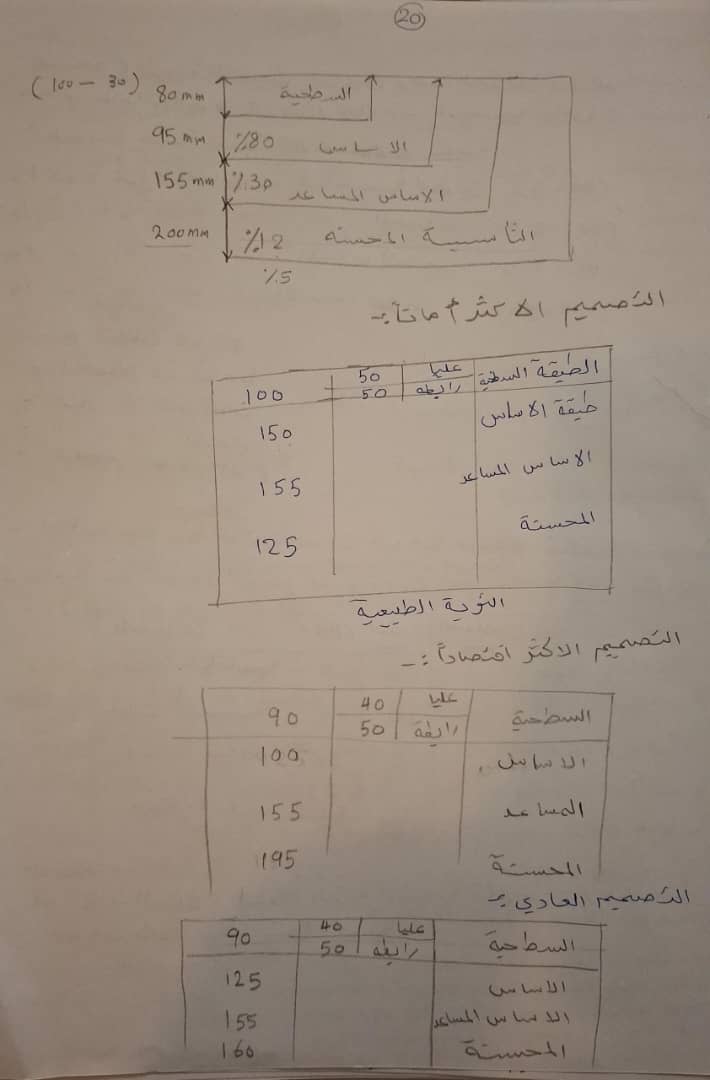 20
(100 - 30) 80mm السطحية
95mm %80 الاساس
155mm %30 الاساس المساعد
200mm %12 التأسيسية المحسنة
%5
التصميم الاكثر أماناً :-
الطبقة السطحية عليا 50 100
رابطة 50
طبقة الاساس 150
الاساس المساعد 155
المحسنة 125
التربة الطبيعية
التصميم الاكثر اقتصاداً :-
السطحية عليا 40 90
رابطة 50
الاساس 100
المساعد 155
المحسنة 195
التصميم العادي :-
السطحية عليا 40 90
رابطة 50
الاساس 125
الاساس المساعد 155
المحسنة 160